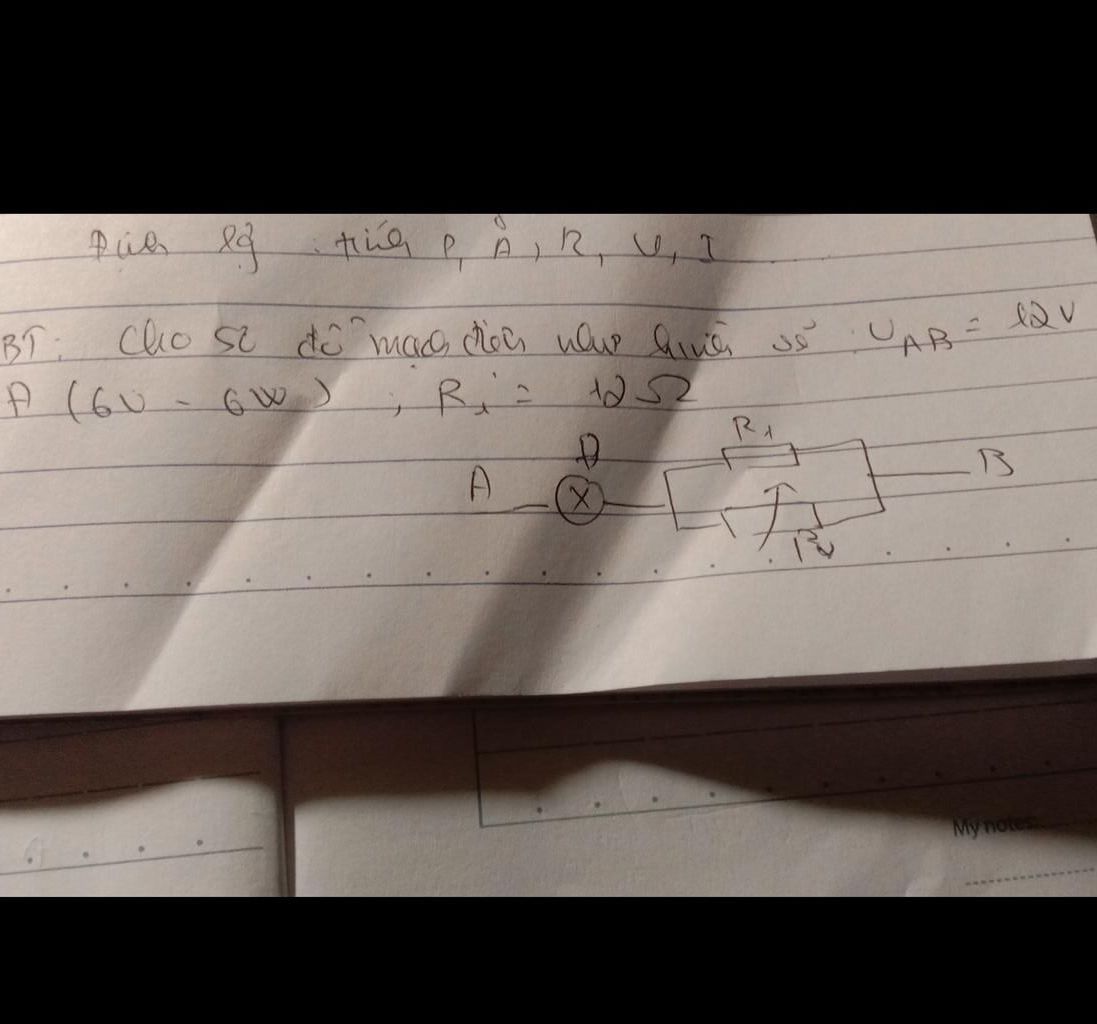 tính P, A, R, U, I
BT: Cho sơ đồ mạch điện như hình vẽ U AB = 12V
Đ (6V - 6W) , R1 = 12Ω
R1
Đ
A
B
My notes